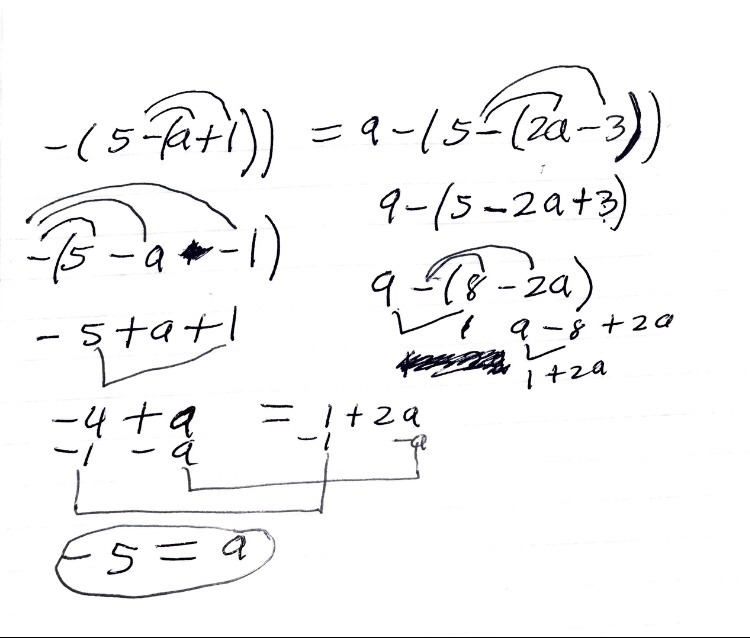 -(5-(a+1)) = 9-(5-(2a-3))
9-(5-2a+3)
-(5-a -1)
9-(8-2a)
-5+a+1
1 9-8+2a
1+2a
-4+a = 1+2a
-1 -a -1 -a
-5=a